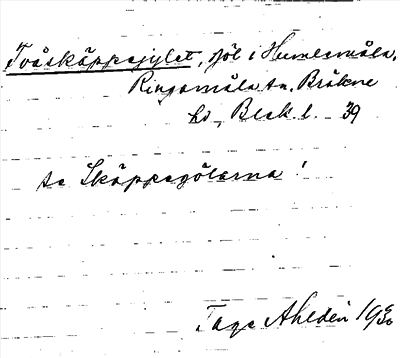 Tvåskäppagylet, sjöl i Humlemåla,
Ringamåla sn. Bräkne
hd, Blek. l. 39
se Skäppagölarna!
Tage Ahldén 1930